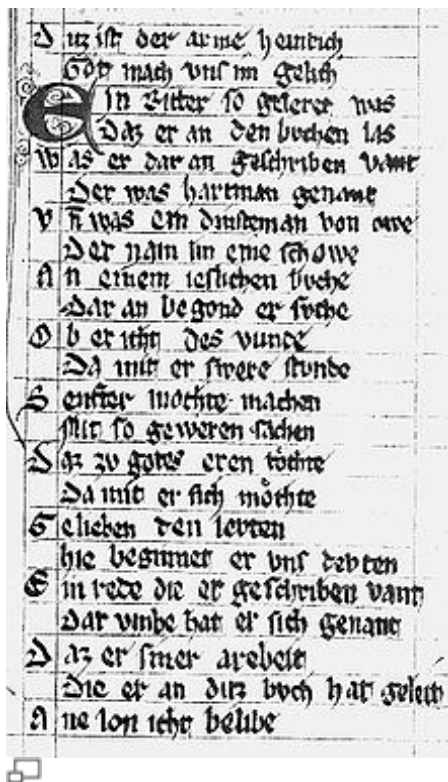 Diz ist der arme heinrich
Got mach vns im gelich
Ein Ritter so geleret was
Daz er an den bvchen las
Was er dar an geschriben vant
Der was hartman genant
Vn̄ was ein dinsteman von owe
Der nam im eine schowe
An einem ieslichen bvche
Dar an begond er svche
Ob er iht des vunde
Da mit er swere stvnde
Senfter mochte machen
Mit so geweren sachen
Daz zv gotes eren tochte
Da mit er sich mochte
Gelieben den levten
hie beginnet er vns devten
Ein rede die er geschriben vant
Dar vmbe hat er sich genant
Daz er siner arebeit
Die er an ditz bvch hat geleit
Ane lon iht belibe